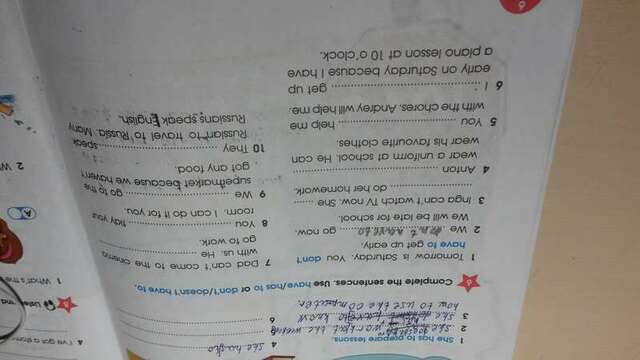 1 She has to prepare lessons.
2 she work at the weekend
3 she to know
how to use the computer.
4 she has to
5
6
6 Complete the sentences. Use have/has to or don't/doesn't have to.
1 Tomorrow is Saturday. You don't
have to get up early.
2 We don't have to go now.
We will be late for school.
3 Inga can't watch TV now. She
do her homework.
4 Anton
wear a uniform at school. He can
wear his favourite clothes.
5 You help me
with the chores. Andrey will help me.
6 I get up
early on Saturday because I have
a piano lesson at 10 o'clock.
7 Dad can't come to the cinema
with us. He
go to work.
8 You tidy your
room. I can do it for you.
9 We go to the
supermarket because we haven't
got any food.
10 They speak
Russian to travel to Russia. Many
Russians speak English.
6
4 I've got a
Listen and
1 What's the
A
2